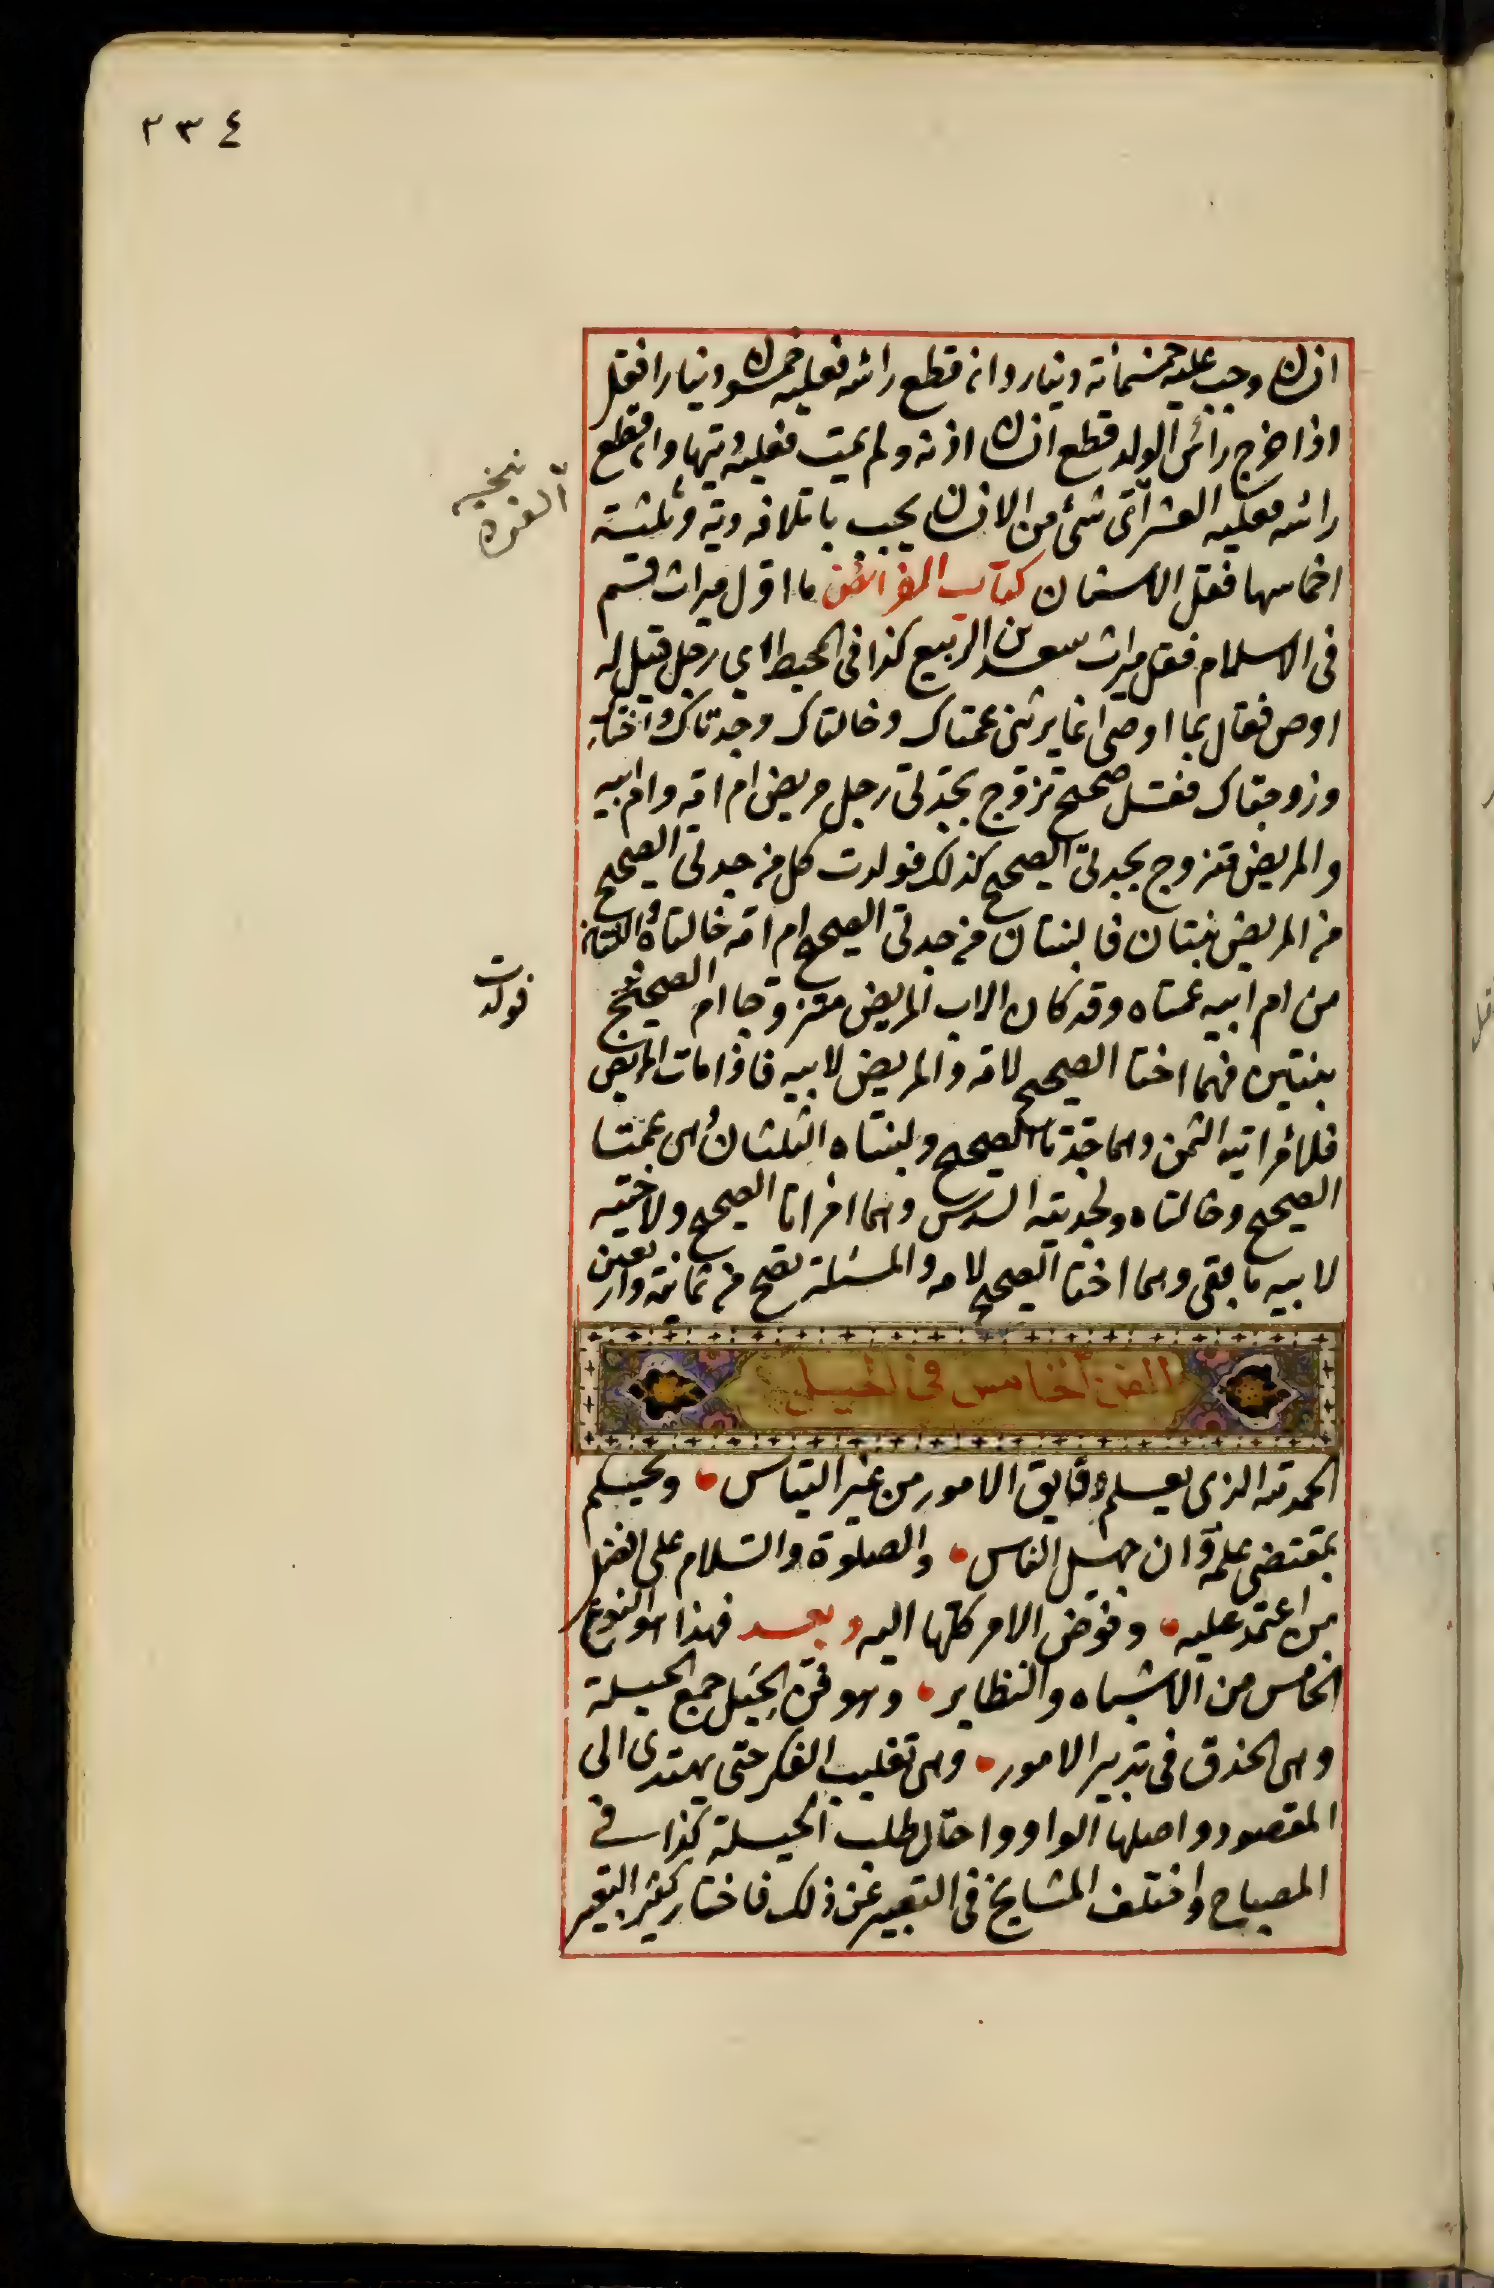 ٢٣٤
انسان وجب عليه خمسمائة دينار وان قطع راسه فعليه خمسون دينارا فقل
اذا خرج رأس الولد فقطع انسان اذنه ولم يمت فعليه ديتها وان قطع
راسه فعليه الغرة اى شئ من الانسان يجب باتلافه دية وثلثة
نخبه
الغره
اخماسها فقل الاسنان كتاب الفرائض ما اول ميراث قسم
فى الاسلام فقل ميراث سعد بن الربيع كذا فى المحيط اى رجل قيل له
اوص فقال بما اوصى انما يرثنى عمتاك وخالتاك وجدتاك واختاك
وزوجتاك فقل صحيح تزوج بجدتى رجل مريض ام امه وام ابيه
والمريض متزوج بجدتى الصحيح كذلك فولدت كل من جدتى الصحيح
من المريض بنتان فالبنتان من جدتى الصحيح ام امه خالتاه واللتان
من ام ابيه عمتاه وقد كان الاب المريض متزوجا ام الصحيح
فولدت
بنتين فهما اختا الصحيح لامه والمريض لابيه فاذا مات المريض
فلامرأتيه الثمن وهما جدتا الصحيح ولبنتاه الثلثان وهن عمتا
الصحيح وخالتاه ولجدتيه السدس وهما امرأتا الصحيح ولاختيه
لابيه ما بقى وهما اختا الصحيح لامه والمسئلة تصح من ثمانية واربعين
الفن الخامس فى الحيل
الحمد لله الذى يعلم دقايق الامور من غير التباس • ويحكم
بمقتضى علمه وان جهل الناس • والصلوة والسلام على افضل
من اعتمد عليه • وفوض الامر كلها اليه وبعد فهذا هو النوع
الخامس من الاشباه والنظاير • وهو فن الحيل جمع الحيلة
وهى الحذق فى تدبير الامور • وهى تقليب الفكر حتى يهتدى الى
المقصود واصلها الواو واحتال طلب الحيلة كذا فى
المصباح واختلف المشايخ فى التعبير عن ذلك فاختار كثير التعبير